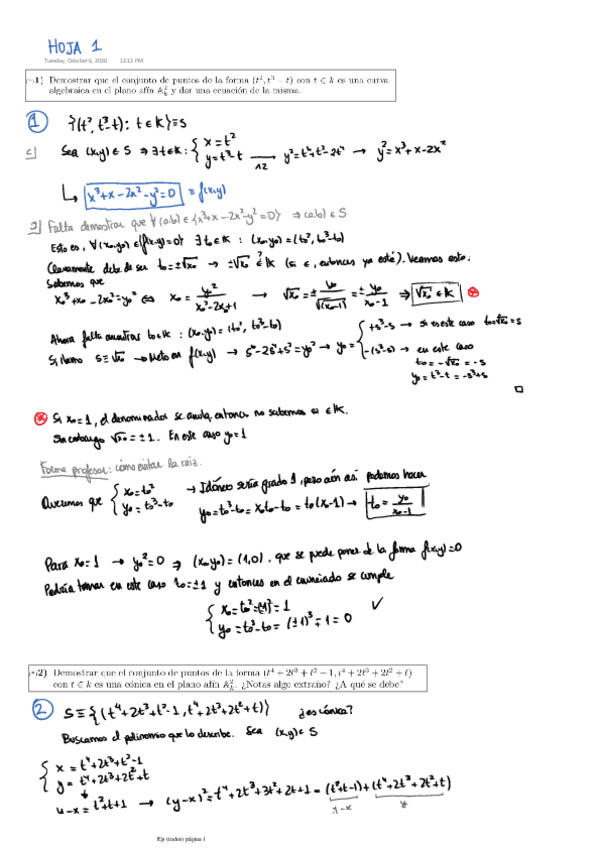 HOJA 1
Tuesday, October 6, 2020 12:12 PM
1) Demostrar que el conjunto de puntos de la forma (t², t³ − t) con t ∈ k es una curva
algebraica en el plano afín 𝔸²ₖ y dar una ecuación de la misma.
1 {(t², t³-t): t∈k}≡S
⊆] Sea (x,y)∈S ⇒ ∃t∈k: { x=t² y=t³-t → ^2 y²=t⁶+t²-2t⁴ → y²=x³+x-2x²
↳ x³+x-2x²-y²=0 ≡ f(x,y)
⊇] Falta demostrar que ∀(a,b)∈{x³+x-2x²-y²=0} ⇒ (a,b)∈S
Esto es, ∀(x₀,y₀)∈{f(x,y)=0} ∃t₀∈k : (x₀,y₀)=(t₀², t₀³-t₀)
Claramente debe de ser t₀=±√x₀ → ±√x₀ ∈? k (si ∈, entonces ya está). Veamos esto.
Sabemos que
x₀³+x₀-2x₀²=y₀² ⇔ x₀ = y₀²/(x₀²-2x₀+1) → √x₀ = ± y₀/√(x₀-1)² = ± y₀/(x₀-1) ⇒ √x₀ ∈ k ⊛
Ahora falta t₀∈k : (x₀,y₀)=(t₀², t₀³-t₀)
Si llamo s≡√x₀ → Meto en f(x,y) → s⁶-2s⁴+s²=y₀² → y₀= { +s³-s → si es este caso t₀=√x₀=s
-(s³-s) → en este caso
t₀=-√x₀=-s
y₀=t³-t=-s³+s
□
⊛ Si x₀=1, el denominador se anula, entonces no sabemos si ∈k.
Sin embargo √x₀=±1. En este caso y₀=1
Forma profesor: cómo evitar la raíz.
Queremos que { x₀=t₀² y₀=t₀³-t₀ → Idóneo sería grado 1, pero aún así podemos hacer
y₀=t₀³-t₀=x₀t₀-t₀=t₀(x₀-1) → t₀= y₀/(x₀-1)
Para x₀=1 → y₀²=0 ⇒ (x₀,y₀)=(1,0), que se puede poner de la forma f(x,y)=0
Podría tomar en este caso t₀=±1 y entonces en el enunciado se cumple
{ x₀=t₀²=(±1)²=1 ✓
y₀=t₀³-t₀=(±1)³∓1=0
2) Demostrar que el conjunto de puntos de la forma (t⁴ + 2t³ + t² − 1, t⁴ + 2t³ + 2t² + t)
con t ∈ k es una cónica en el plano afín 𝔸²ₖ. ¿Notas algo extraño? ¿A qué se debe?
2 S≡{(t⁴+2t³+t²-1, t⁴+2t³+2t²+t)} ¿es cónica?
Buscamos el polinomio que lo describe. Sea (x,y)∈S
{ x=t⁴+2t³+t²-1
y=t⁴+2t³+2t²+t
↓
y-x=t²+t+1 → (y-x)²=t⁴+2t³+3t²+2t+1=(t²+t+1)+(t⁴+2t³+2t²+t)
y-x y
Ejs (todos) página 1